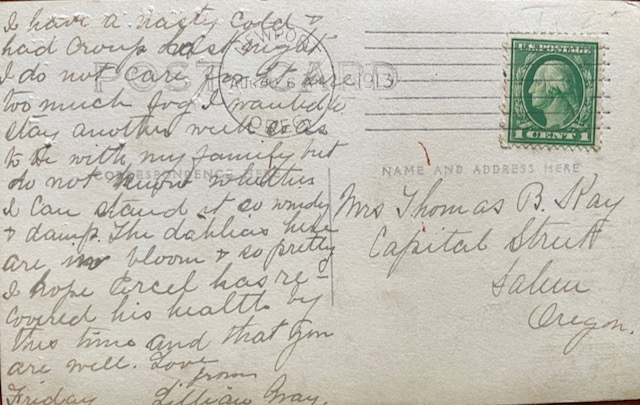 I have a nasty cold &
had Croup last night
I do not care for it here
too much fog I wanted to
stay another week so as
to be with my family but
do not know whether
I can stand it so windy
& damp. The dahlias here
are in bloom & so pretty
I hope Ercel has re-
covered his health by
this time and that you
are well. Love
from
Friday Lillian Gray.
POST CARD
NEWPORT
AUG
1913
OREG
U.S. POSTAGE
1 CENT 1
CORRESPONDENCE HERE
NAME AND ADDRESS HERE
Mrs Thomas B. Kay
Capital Street
Salem
Oregon.